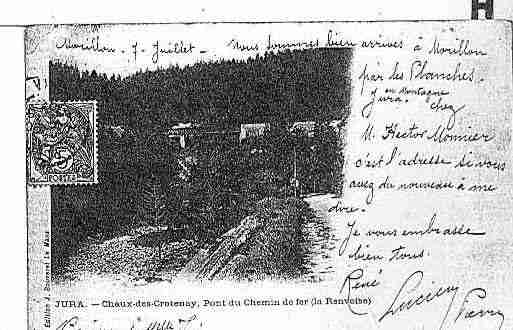 H
Morillon - 7 - Juillet - Nous sommes bien arrivés à Morillon
par les Planches.
en Montagne
Jura. chez
M. Hector Monnier
c'est l'adresse si vous
avez du nouveau à me
dire.
Je vous embrasse
bien tous.
René
Lucien
5
POSTES
JURA. — Chaux-des-Crotenay, Pont du Chemin de fer (la Renvoise)